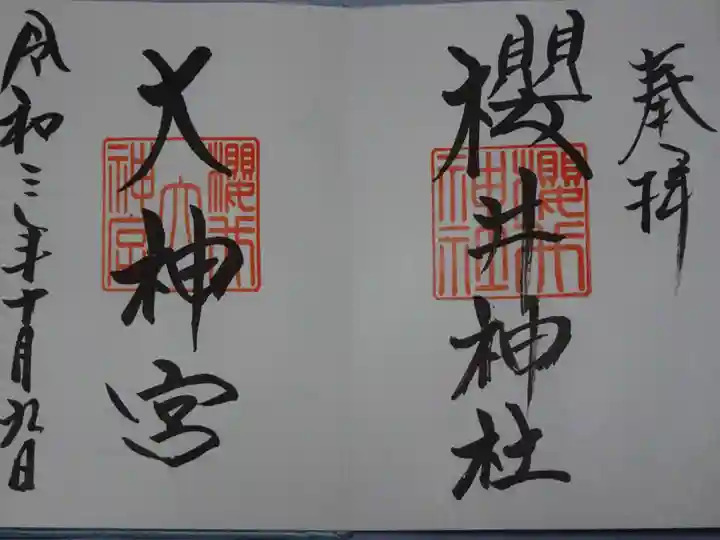 奉拝
櫻井神社
櫻井神社
大神宮
櫻井大神宮
令和三年十月九日